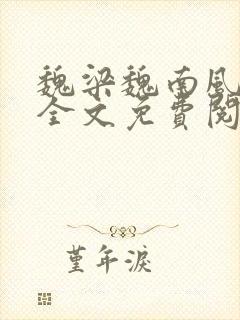 魏梁魏南風
全文免費閱
堇年淚